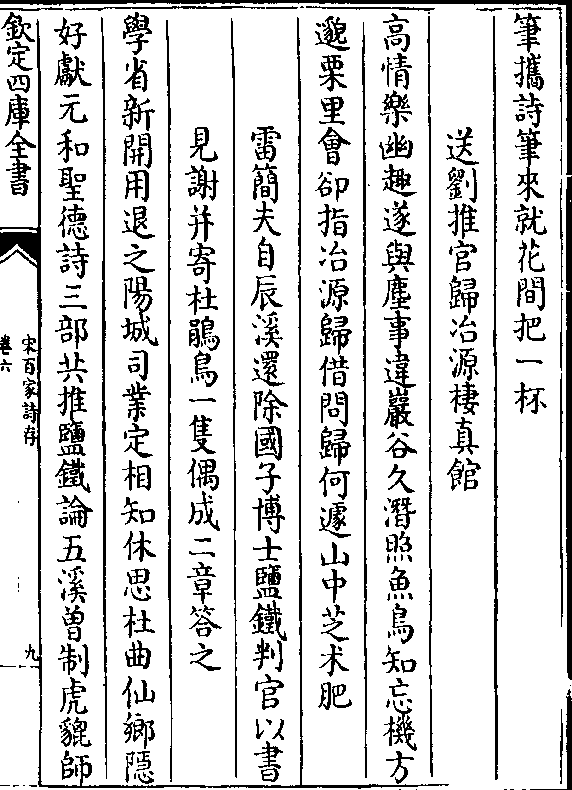 筆攜詩筆來就花間把一杯
送劉推官歸冶源棲真館
高情樂幽趣遂與塵事違巖谷久潛照魚鳥知忘機方
邈栗里會卻指冶源歸借問歸何遽山中芝术肥
雷簡夫自辰溪還除國子博士鹽鐵判官以書
見謝并寄杜鵑鳥一隻偶成二章答之
學省新開用退之陽城司業定相知休思杜曲仙鄉隱
好獻元和聖德詩三部共推鹽鐵論五溪曽制虎貔師
欽定四庫全書
宋百家詩存
卷六
九